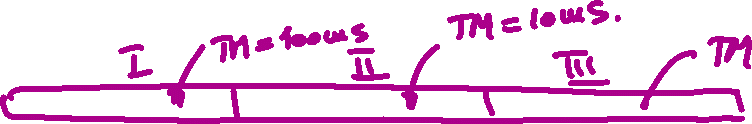 I TM = 100ms II TM = 10ms. III TM